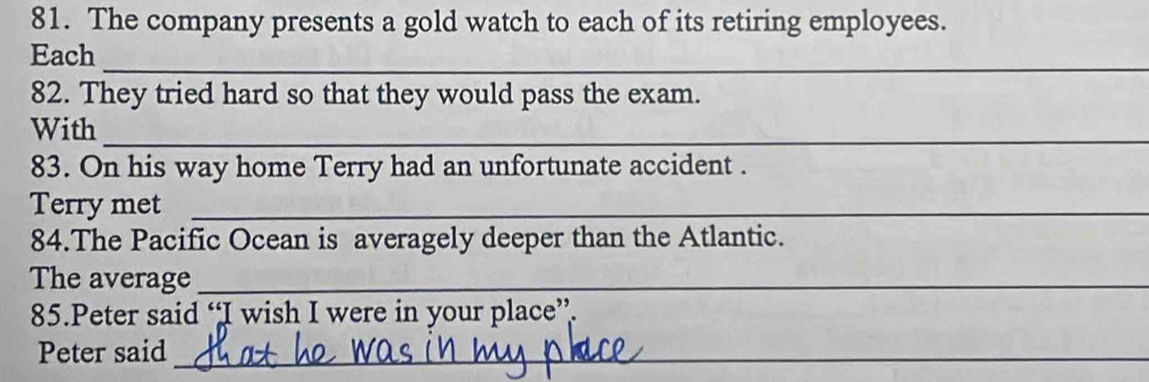 81. The company presents a gold watch to each of its retiring employees.
Each
82. They tried hard so that they would pass the exam.
With
83. On his way home Terry had an unfortunate accident .
Terry met
84.The Pacific Ocean is averagely deeper than the Atlantic.
The average
85.Peter said “I wish I were in your place”.
Peter said that he was in my place